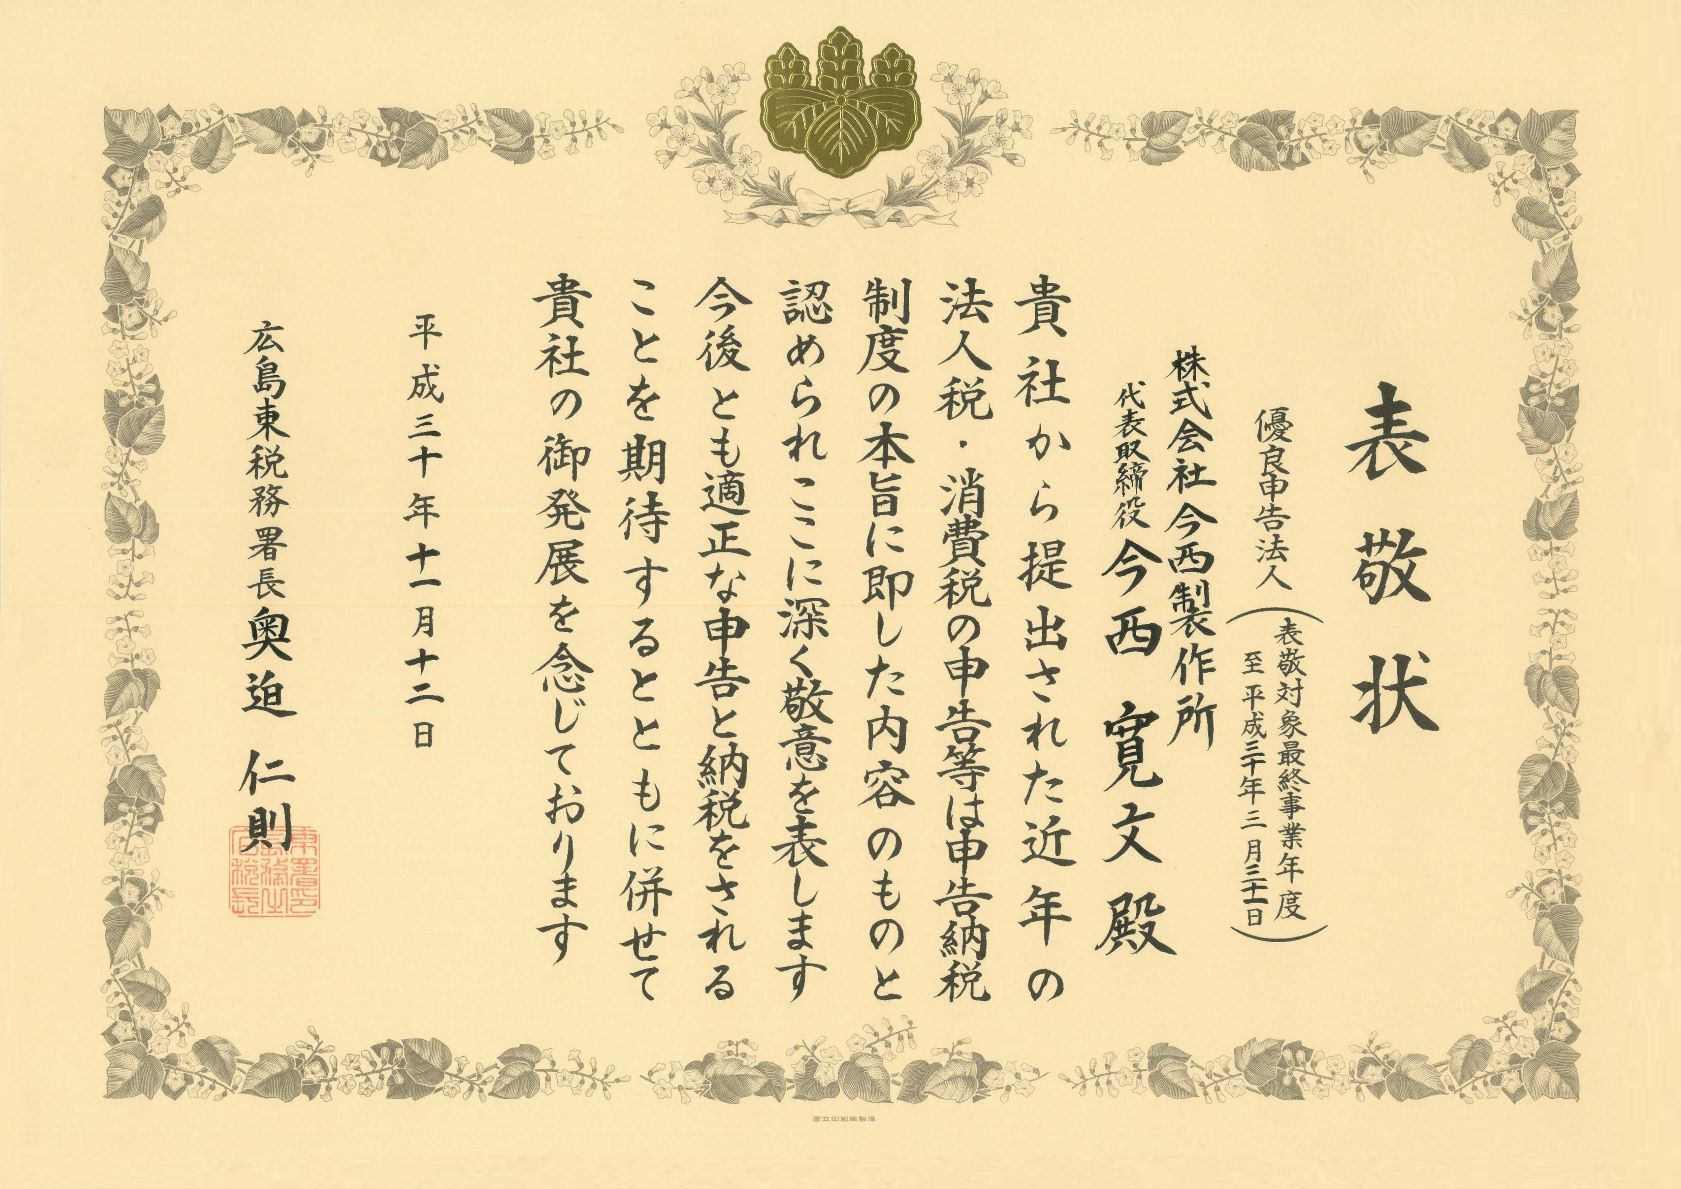 表敬状
優良申告法人
（表敬対象最終事業年度
至平成三十年三月三十一日）
株式会社今西製作所
代表取締役 今西 寛文殿
貴社から提出された近年の
法人税・消費税の申告等は申告納税
制度の本旨に即した内容のものと
認められここに深く敬意を表します
今後とも適正な申告と納税をされる
ことを期待するとともに併せて
貴社の御発展を念じております
平成三十年十一月十二日
広島東税務署長 奥迫 仁則
国立印刷局製造